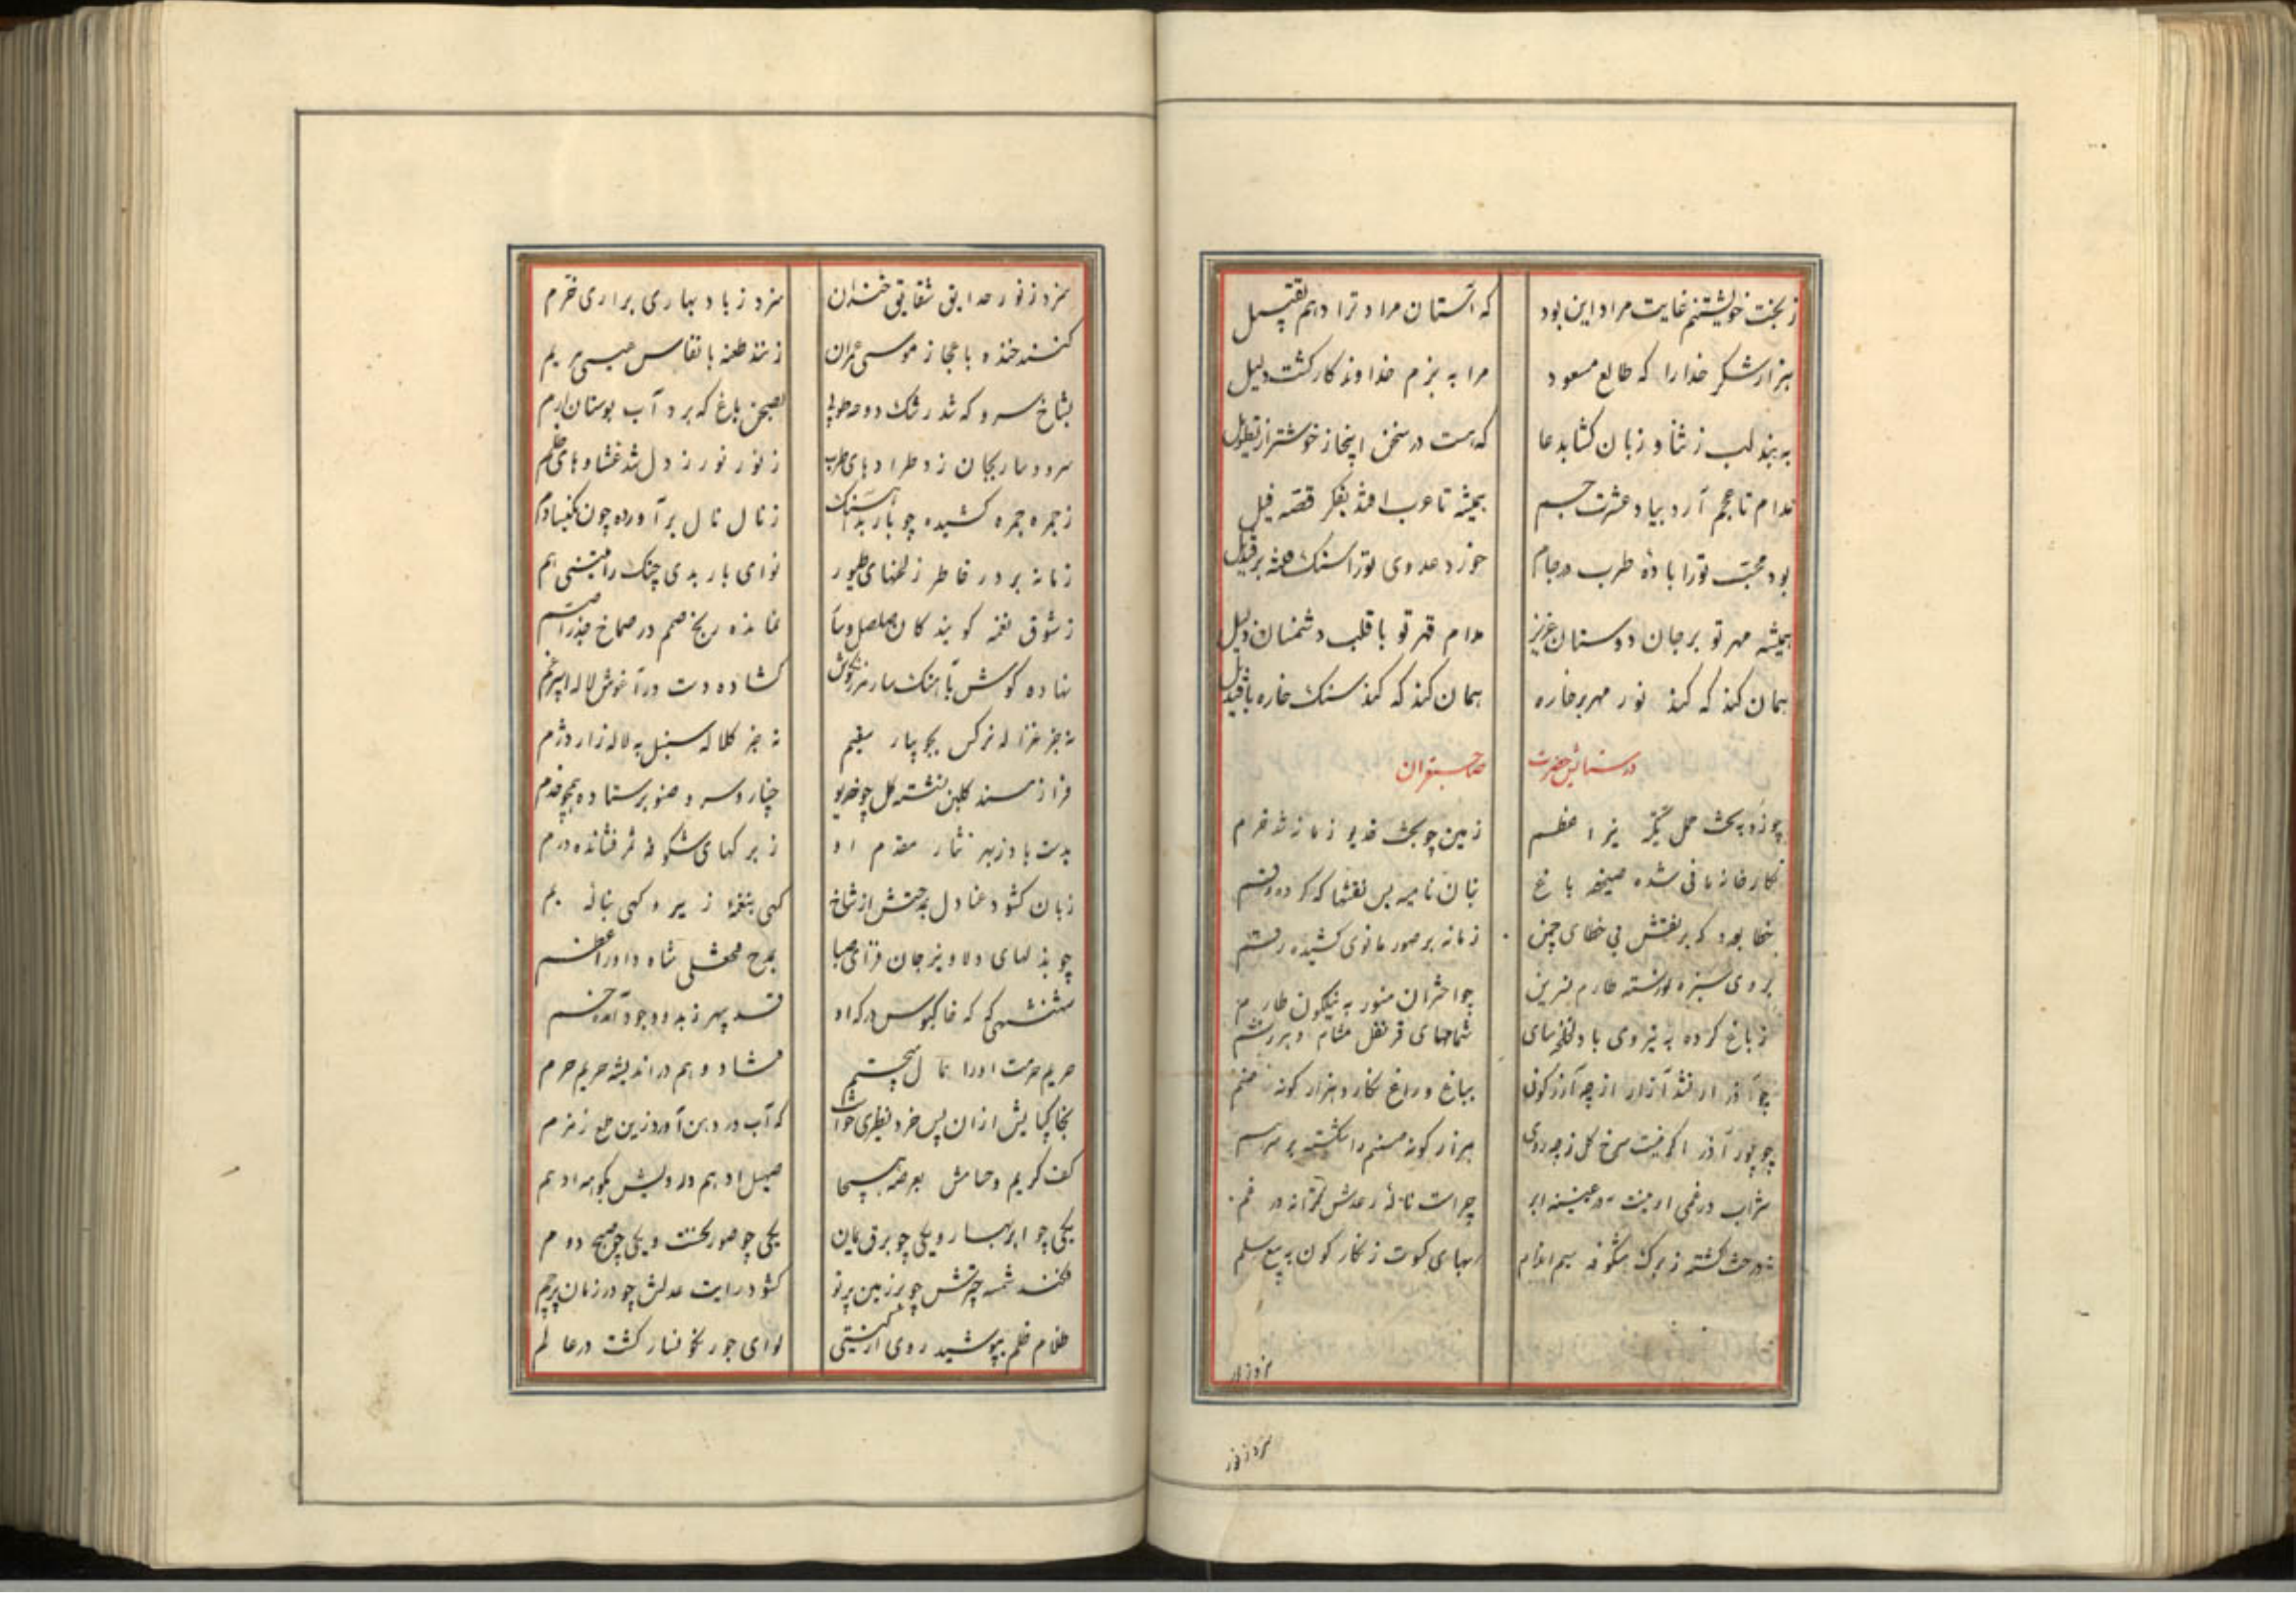 ز بخت خویشتنم غایت مراد این بود که آستان مراد ترا دهم تقبیل
هزار شکر خدا را که طالع مسعود مرا به بزم خداوندکار کشت دلیل
به بند لب ز ثنا و زبان کشا بدعا که هست در سخن ایجاز خوشتر از تطویل
مدام تا عجم آرد بیاد عشرت جم همیشه تا عرب افتد بفکر قصه فیل
بود محبت تو را باده طرب در جام خورد عدوی تو را سنک فتنه بر قندیل
همیشه مهر تو بر جان دوستان عزیز مدام قهر تو با قلب دشمنان ذلیل
همان کند که کند نور مهر بر خاره همان کند که کند سنک خاره با قندیل
در ستایش حضرت صاحبقران
چو زد به تخت حمل نیر اعظم زمین چو تخت خدیو زمانه شد خرم
نکارخانه مانی شده صحیفه باغ بنان نامیه بس نقشها که کرده رقم
بخطا بود که بر نقشش بی خطای چین زمانه بر صور مانوی کشیده رقم
بروی سبزه نورسته طارم نسرین چو اختران منور به نیلکون طارم
ز باغ کرده به نیروی باد لخلخه سای شمامهای قرنفل مشام
چو آذر ار نشد آزار از چه آزرکون بباغ و راغ نکارد هزار کونه صنم
چو پور آذر اکر نیست سرخ کل ز چه روی هزار کونه صنم را شکسته بر سر هم
شراب در خمی ار نیست در ابر چراست ناله رعدش در خم
درخت کشته ز برک شکوفه سیم اندام بهای کوت زنکار کون به بیع سلم
سزد ز نور
سزد ز نور حدایق شقایق خندان سزد ز باد بهاری براری خرم
کنند خنده باعجاز موسی عمران زنند طعنه بانفاس عیسی مریم
بشاخ سرو که شد رشک دوحه طوبی بصحن باغ که برد آب بوستان ارم
سرود سار بجان زد طرادهای طرب ز نور نور ز دل شد غشاوهای ظلم
ز جمره جمره کشیده چو باربد آهنک ز نال نال برآورده چون نکیسا دم
زمانه برد ز خاطر ز لحنهای طیور نوای باربدی چنک رامتینی هم
ز شوق نغمه کویندکان صلصل و سار نمانده رنج صمم در صماخ جذر اصم
نهاده کوش بآهنک سار مرزنکوش کشاده دست در آغوش لاله اسپرغم
نه جز غزاله نرکس بجویبار سقیم نه جز کلاله سنبل به لاله زار دژم
فراز مسند کلبن نشسته کل چو خدیو چنار و سرو و صنوبر ستاده همچو خدم
بدست باد ز بهر نثار مقدم او ز برکهای شکوفه فشانده درم
زبان کشود عنادل بمدحتش از شاخ کهی بنغمه زیر و کهی بناله بم
چو بذلهای دلاویز جان فزای صبا بمدح فتحعلی شاه داور اعظم
شهنشهی که که خاکبوس درکه او قد سپهر ز بدو وجود آمده خم
حریم حرمت او را همال می جستم فشاد وهم در اندیشه حریم حرم
بخاکپایش از آن پس خرد نظیری خواست که آب در دهن آورد زین طمع زمزم
کف کریم و حسامش بعرصه هیجا صهیل ادهم در دویش بکوهه ادهم
یکی چو ابر بهار و یکی چو برق یمان یکی چو صور نخست و یکی چو صبح دوم
فکند شمسه چترش چو بر زمین پرتو کشود رایت عدلش چو در زمان پرچم
ظلام ظلم بپوشید روی از کیتی لوای جور نکونسار کشت در عالم